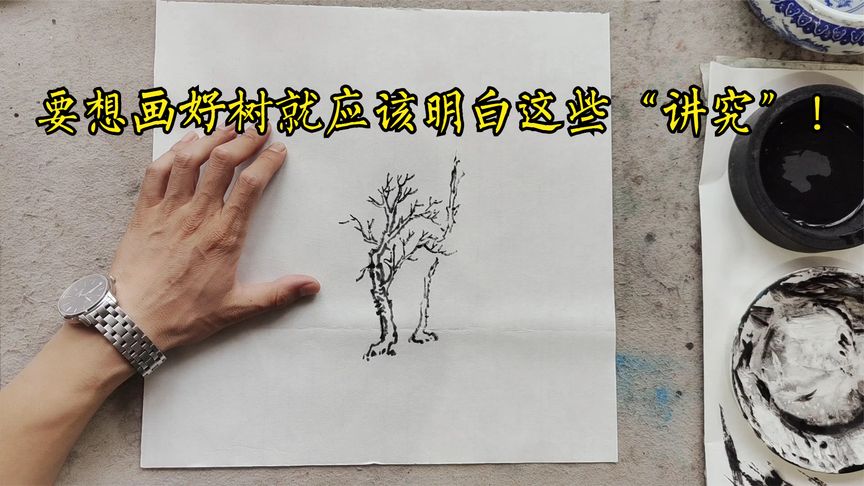 要想画好树就应该明白这些“讲究”！